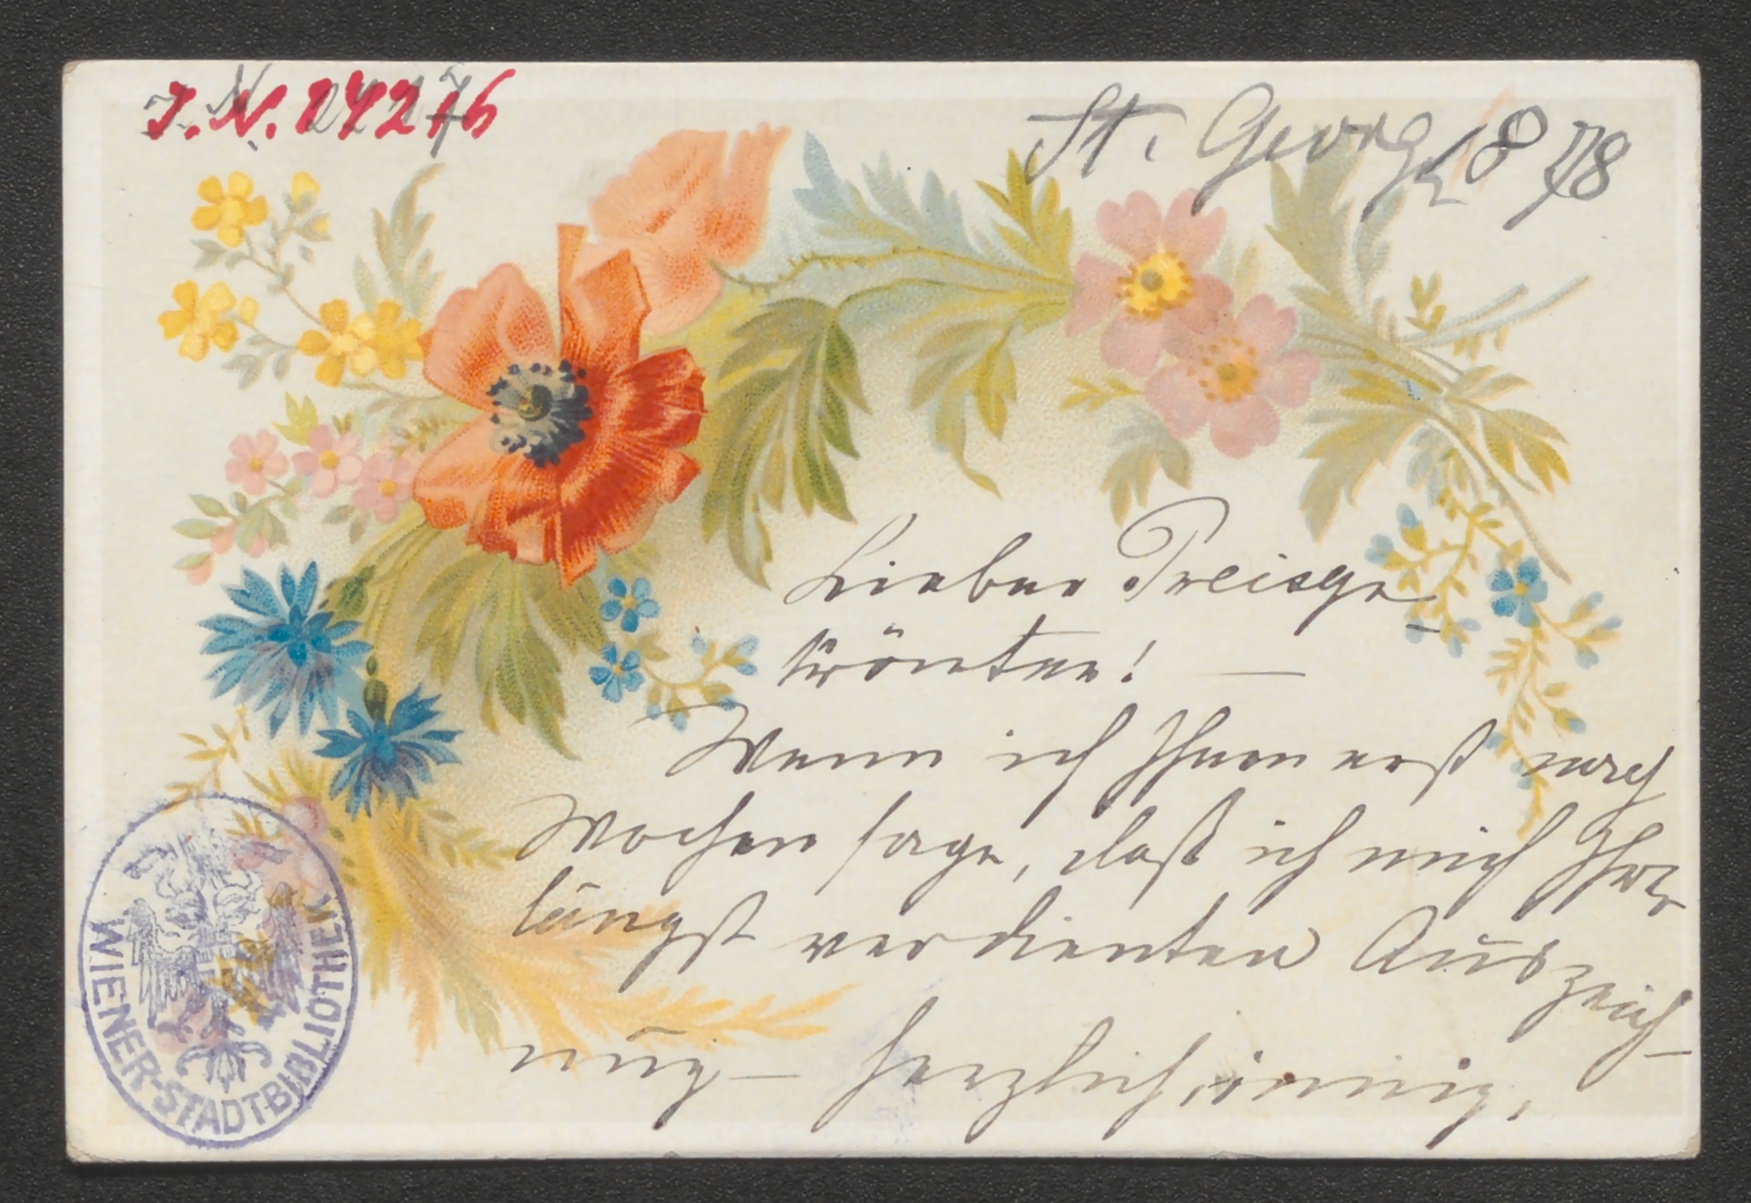 J. N. 27276
St. Georg, 18 7/8
Lieber Preisge-
krönter! —
Wenn ich Ihnen erst nach
Wochen sage, daß ich mich Ihrer
längst verdienten Auszeich-
nung — herzlich, innig,
WIENER-STADTBIBLIOTHEK